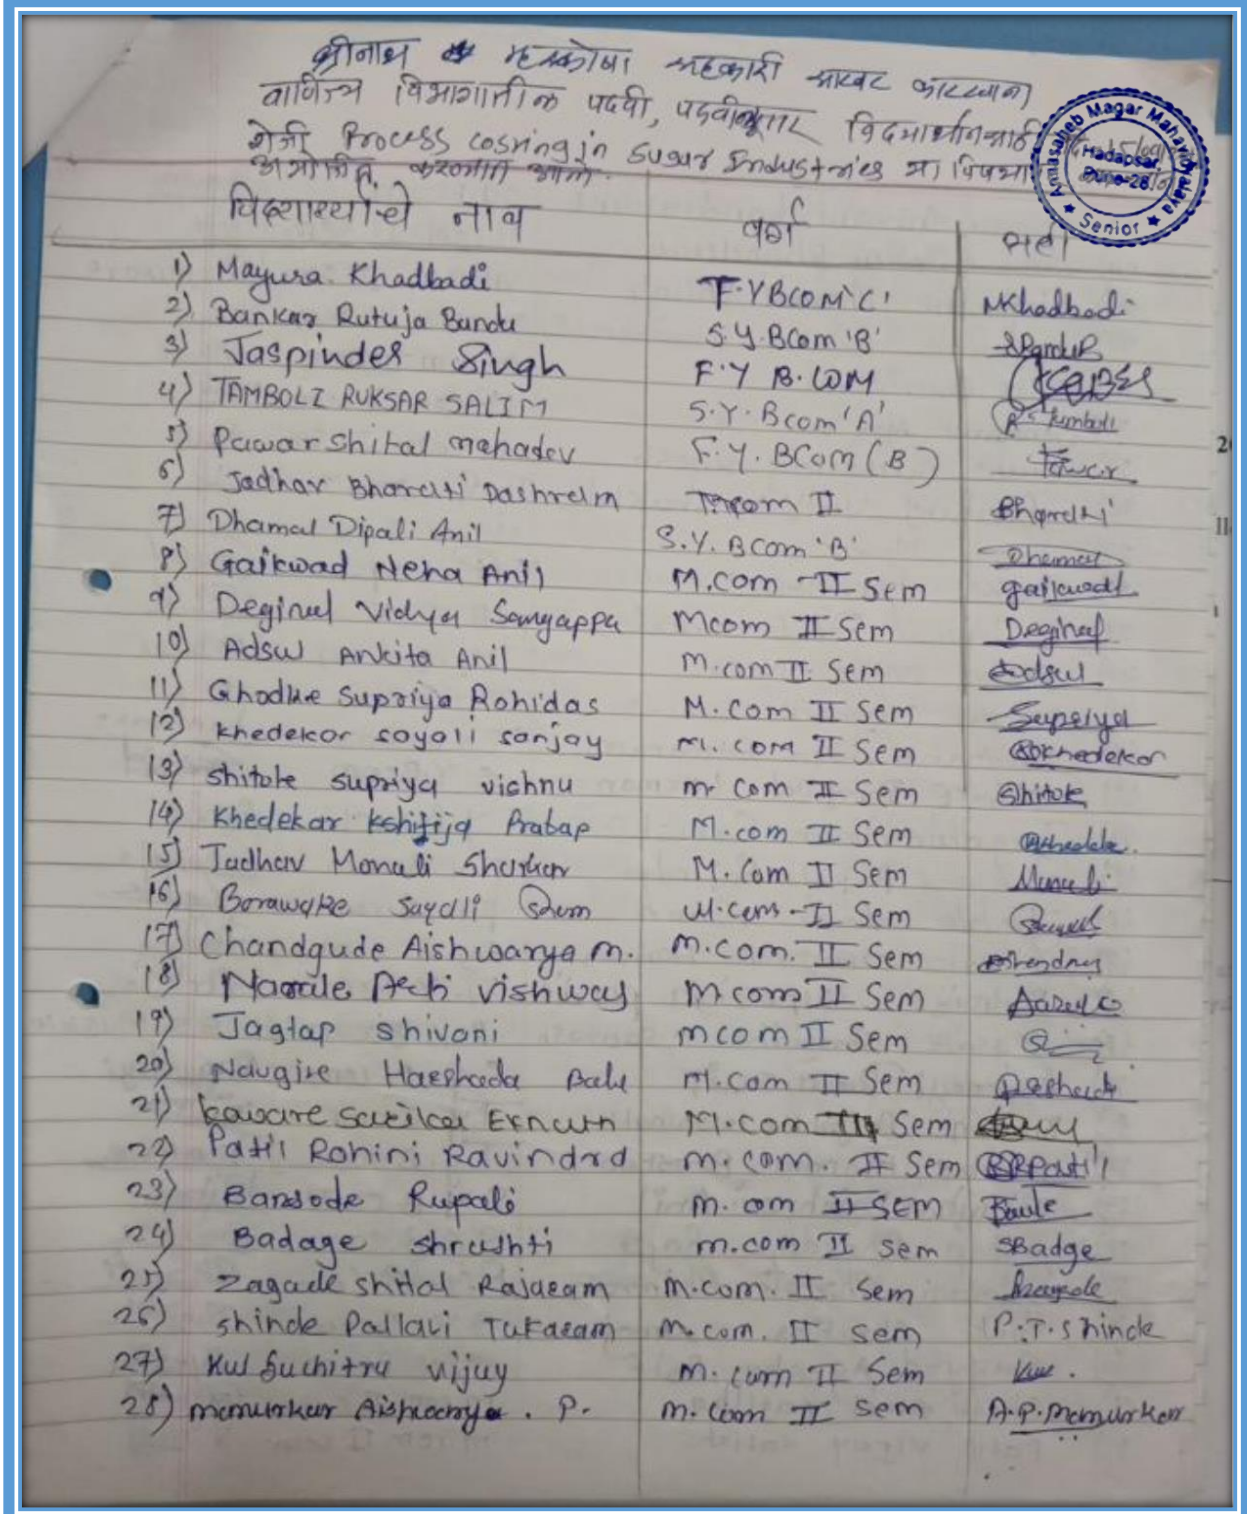 श्रीनाथ म्हस्कोबा सहकारी साखर कारखाना
वाणिज्य विभागातील पदवी, पदव्युत्तर विद्यार्थ्यांसाठी
रोजी Process cosning in Sugar Industries या विषया
आयोजित करण्यात आले.
विद्यार्थ्यांचे नाव वर्ग सही
Annasaheb Magar Mahavidyalaya
Hadapsar
Pune-28
★ Senior ★
1) Mayura Khadbadi F.Y BCOM 'C' MKhadbadi
2) Bankar Rutuja Bandu S.Y. BCom 'B'
3) Jaspinder Singh F.Y B.COM
4) TAMBOLI RUKSAR SALIM S.Y. Bcom 'A'
5) Pawar Shital mahadev F.Y. BCom (B) Pawar
6) Jadhav Bharati Dashrath com II Bharati
7) Dhamal Dipali Anil S.Y. BCom 'B' Dhamal
8) Gaikwad Neha Anil M.com - II Sem gaikwad
9) Deginal Vidya Sangappa Mcom II Sem Deginal
10) Adsul Ankita Anil M.com II Sem Adsul
11) Ghodke Supriya Rohidas M.Com II Sem Supriya
12) khedekar sayali sanjay M.com II Sem Khedekar
13) shitole supriya vishnu m com II Sem Shitole
14) Khedekar Kshitija Pratap M.com II Sem
15) Jadhav Monali Shankar M.Com II Sem Monali
16) Borawake Sayali M.com - II Sem
17) Chandgude Aishwarya M. M.com. II Sem
18) Narale Arti vishwas M com II Sem
19) Jagtap shivani mcom II Sem
20) Navgire Harshada Balu M.com II Sem
21) kaware Sarika Eknath M.com II Sem
22) Patil Rohini Ravindra m.com. II Sem RRPatil
23) Bansode Rupali M. om II SEM
24) Badage shrushti m.com II sem SBadge
25) Zagade shital Rajaram M.com. II Sem
26) shinde Pallavi Tukaram M.com. II sem P.T.shinde
27) Kul Suchitra vijay M.com II Sem Kul.
28) mcmurkar Aishwarya. P. M.com II Sem A.P.mcmurkar